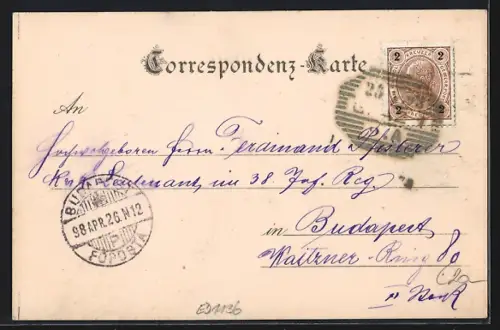 Correspondenz-Karte
2 2
2 2
An
Hochwohlgeboren Herrn Ferdinand Pfisterer
Leutenant im 38 Inf. Reg.
BUDAPEST
98 APR. 26. N 12
FŐPOSTA
in Budapest
Waitzner-Ring 80
II Stock
ED1136